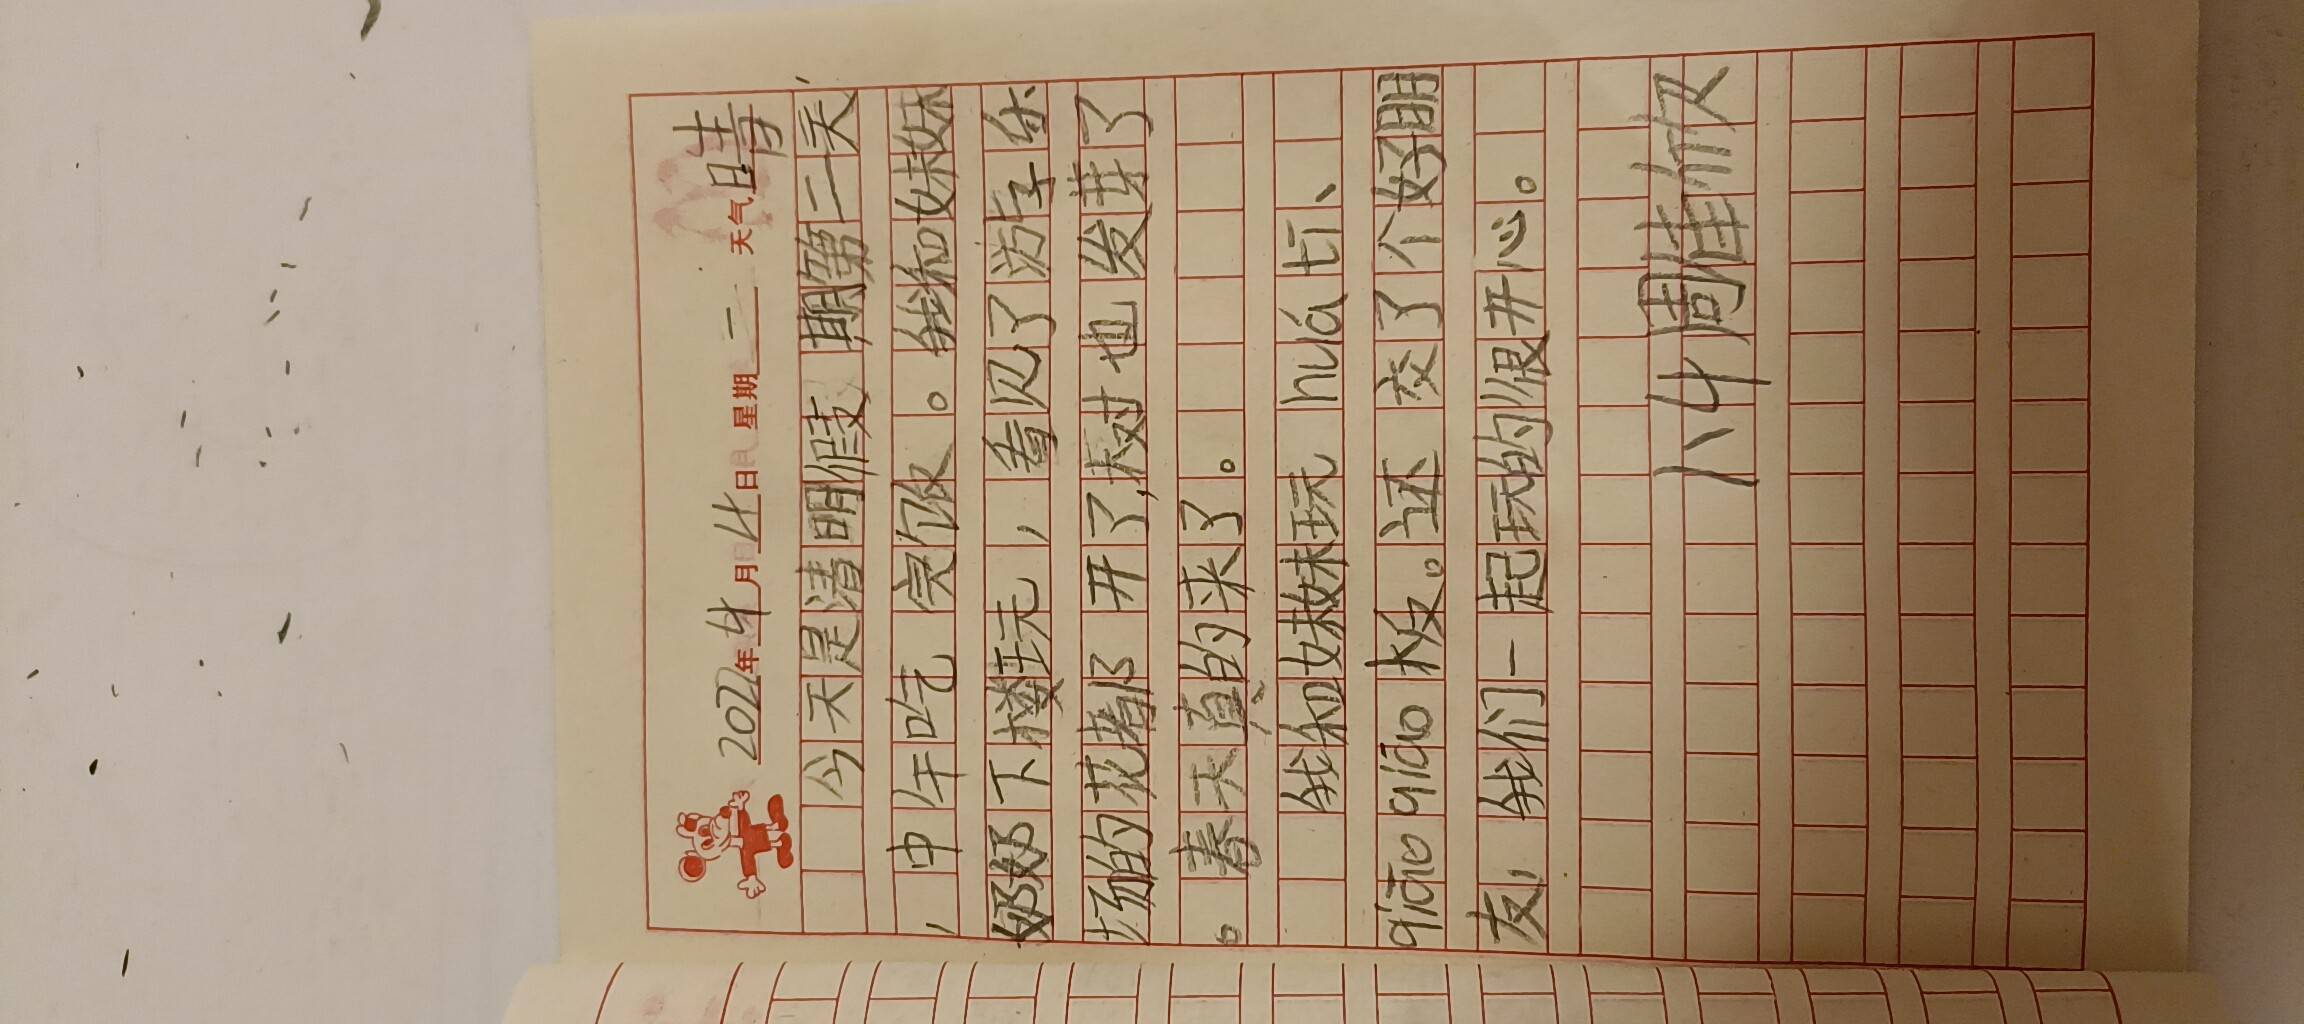 2022年4月4日 星期一 天气晴
今天是清明假期第二天
,中午吃完饭。我和妹妹
奶奶下楼玩,看见了游乐
场的花都开了,树也发芽了
。春天真的来了。
我和妹妹玩huá tī、
qiāo qiāo板。还交了个好朋
友,我们一起玩的很开心。
八4周佳